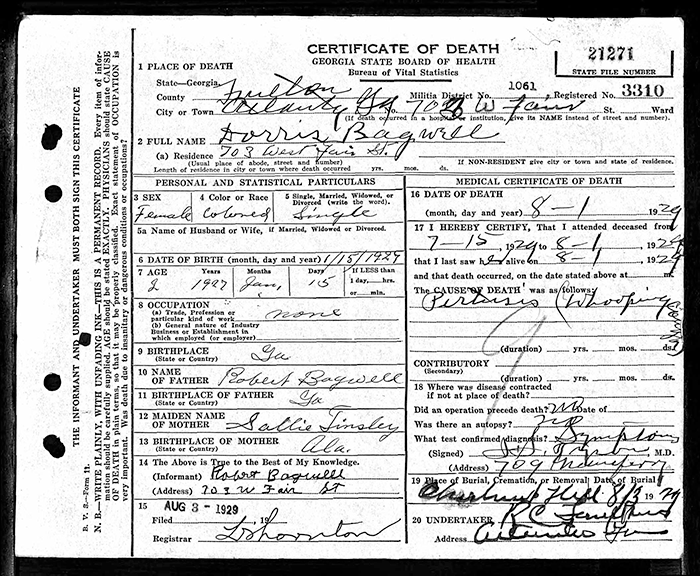 CERTIFICATE OF DEATH
GEORGIA STATE BOARD OF HEALTH
Bureau of Vital Statistics
21271
STATE FILE NUMBER
1 PLACE OF DEATH
State—Georgia
County Fulton Militia District No. 1061 Registered No. 3310
City or Town Atlanta Ga No. 703 W Fair St. Ward
(If death occurred in a hospital or institution, give its NAME instead of street and number).
2 FULL NAME Dorris Bagwell
(a) Residence 703 West Fair St.
(Usual place of abode, street and number) If NON-RESIDENT give city or town and state of residence.
Length of residence in city or town where death occurred yrs. mos. ds.
PERSONAL AND STATISTICAL PARTICULARS
3 SEX 4 Color or Race 5 Single, Married, Widowed or Divorced (write the word).
Female Colored Single
5a Name of Husband or Wife, if Married, Widowed or Divorced
6 DATE OF BIRTH (month, day and year) 1/15/1927
7 AGE Years Months Days If LESS than
2 1927 Jan, 15 1 day, hrs.
or min.
8 OCCUPATION
(a) Trade, Profession or particular kind of work none
(b) General nature of Industry
Business or Establishment in
which employed (or employer)
9 BIRTHPLACE Ga
(State or Country)
10 NAME OF FATHER Robert Bagwell
11 BIRTHPLACE OF FATHER Ga
(State or Country)
12 MAIDEN NAME OF MOTHER Sallie Tinsley
13 BIRTHPLACE OF MOTHER Ala.
(State or Country)
14 The Above is True to the Best of My Knowledge.
(Informant) Robert Bagwell
(Address) 703 W Fair St
15 AUG 3 - 1929
Filed , 19
MEDICAL CERTIFICATE OF DEATH
16 DATE OF DEATH
(month, day and year) 8-1 1929
17 I HEREBY CERTIFY, That I attended deceased from
7-15, 1929 to 8-1, 1929
that I last saw her alive on 8-1, 1929
and that death occurred, on the date stated above at m.
The CAUSE OF DEATH was as follows:
Pertusis (Whooping
Cough)
(duration) yrs. mos. ds.
CONTRIBUTORY
(Secondary)
(duration) yrs. mos. ds.
18 Where was disease contracted
if not at place of death?
Did an operation precede death? no Date of
Was there an autopsy? no
What test confirmed diagnosis? Symptoms
(Signed) M.D.
(Address) 709
19 Place of Burial, Cremation, or Removal Date of Burial
Chestnut Hill 8/3 1929
20 UNDERTAKER
Address
THE INFORMANT AND UNDERTAKER MUST BOTH SIGN THIS CERTIFICATE
B. V. S.—Form 11.
N. B.—WRITE PLAINLY, WITH UNFADING INK—THIS IS A PERMANENT RECORD. Every item of information should be carefully supplied. AGE should be stated EXACTLY. PHYSICIANS should state CAUSE OF DEATH in plain terms, so that it may be properly classified. Exact statement of OCCUPATION is very important. Was death due to insanitary or dangerous conditions or occupations?